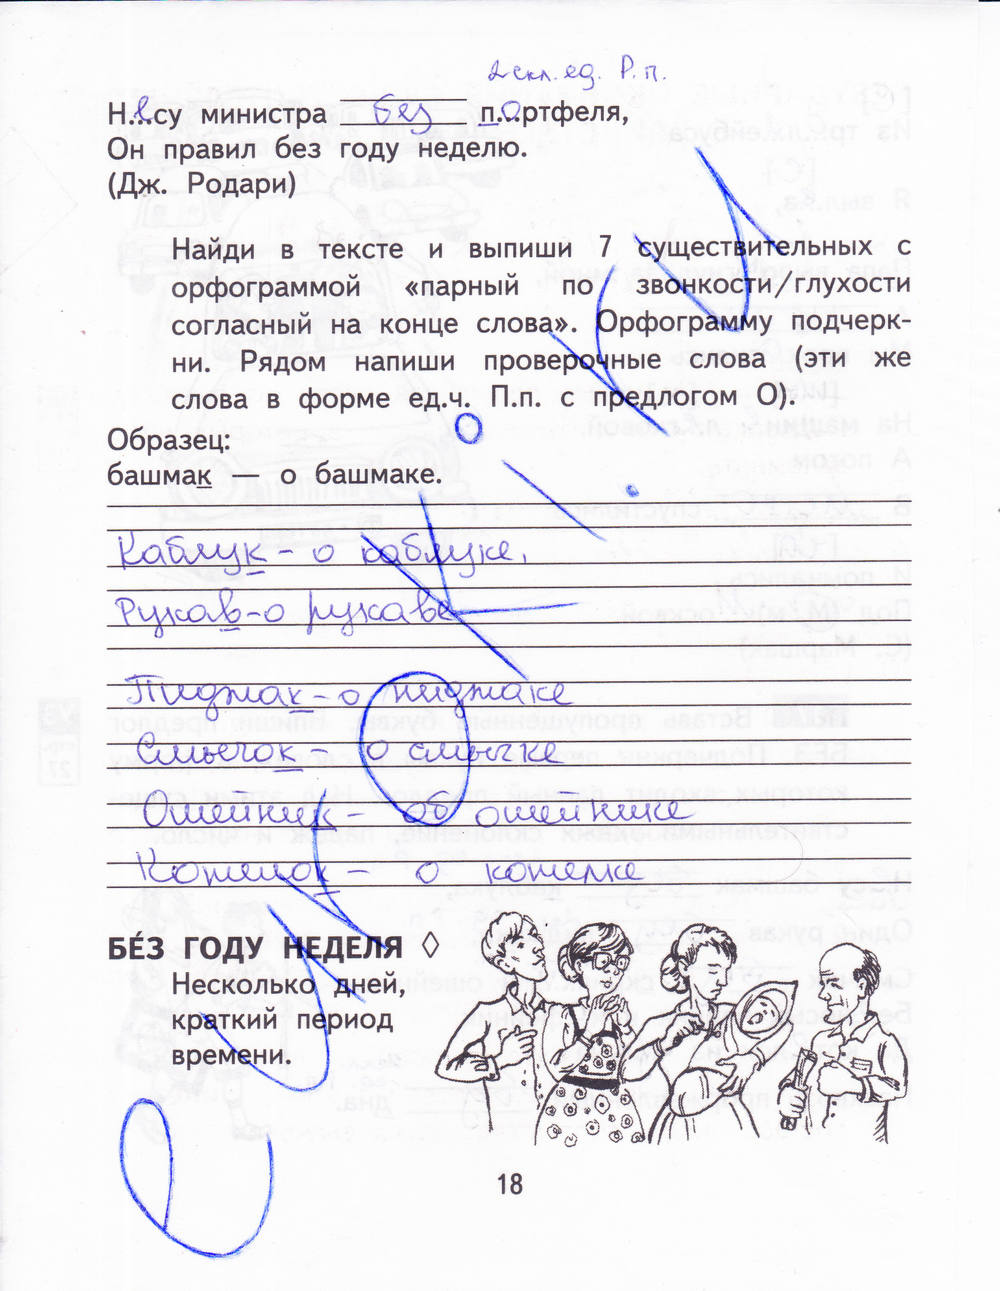 2 скл. ед. Р.п.
Несу министра без портфеля,
Он правил без году неделю.
(Дж. Родари)
Найди в тексте и выпиши 7 существительных с
орфограммой «парный по звонкости/глухости
согласный на конце слова». Орфограмму подчерк-
ни. Рядом напиши проверочные слова (эти же
слова в форме ед.ч. П.п. с предлогом О).
Образец:
башмак — о башмаке.
Каблук - о каблуке,
Рукав - о рукаве
Пиджак - о пиджаке
Смычок - о смычке
Ошейник - об ошейнике
Кошелок - о кошелке
БЕЗ ГОДУ НЕДЕЛЯ ◊
Несколько дней,
краткий период
времени.
18